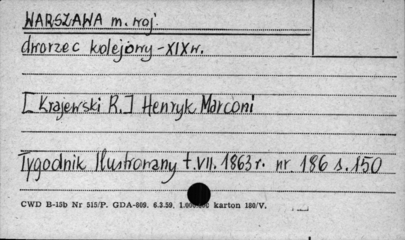 WARSZAWA m. woj.
dworzec kolejowy - XIX w.
[Krajewski R.] Henryk Marconi
Tygodnik Ilustrowany t.VII. 1863 r. nr. 186 s. 150
CWD B-15b Nr 515/P. GDA-809. 6.3.59. karton 180/V.